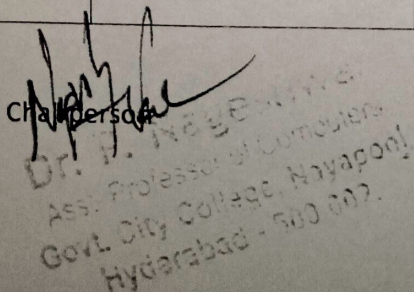 Chairperson
Dr. P. Nageswara
Asst. Professor of Computers
Govt. City College, Nayapool,
Hyderabad - 500 002.